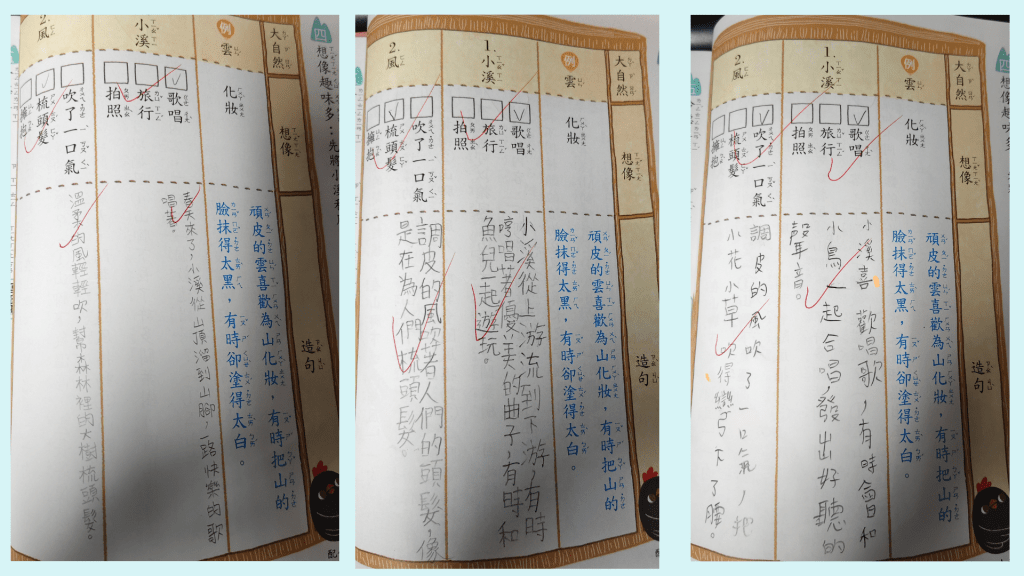 四
想像趣味多：先將小溪
大自然
想像
造句
例
雲
化妝
頑皮的雲喜歡為山化妝，有時把山的
臉抹得太黑，有時卻塗得太白。
小溪
歌唱
旅行
拍照
春天來了，小溪從山頂溜到山腳，一路快樂的歌
唱著。
2.
風
吹了一口氣
梳頭髮
擁抱
溫柔的風輕輕吹，幫森林裡的大樹梳頭髮。
配
大自然
想像
造句
例
雲
化妝
頑皮的雲喜歡為山化妝，有時把山的
臉抹得太黑，有時卻塗得太白。
1.
小溪
歌唱
旅行
拍照
小溪從上游流到下游，有時
哼唱著優美的曲子，有時和
魚兒一起遊玩。
2.
風
吹了一口氣
梳頭髮
擁抱
調皮的風吹著人們的頭髮，像
是在為人們梳頭髮。
四
想像趣味多
大自然
想像
造句
例
雲
化妝
頑皮的雲喜歡為山化妝，有時把山的
臉抹得太黑，有時卻塗得太白。
1.
小溪
歌唱
旅行
拍照
小溪喜歡唱歌，有時會和
小鳥一起合唱，發出好聽的
聲音。
2.
風
吹了一口氣
梳頭髮
擁抱
調皮的風吹了一口氣，把
小花小草吹得彎下了腰。
配